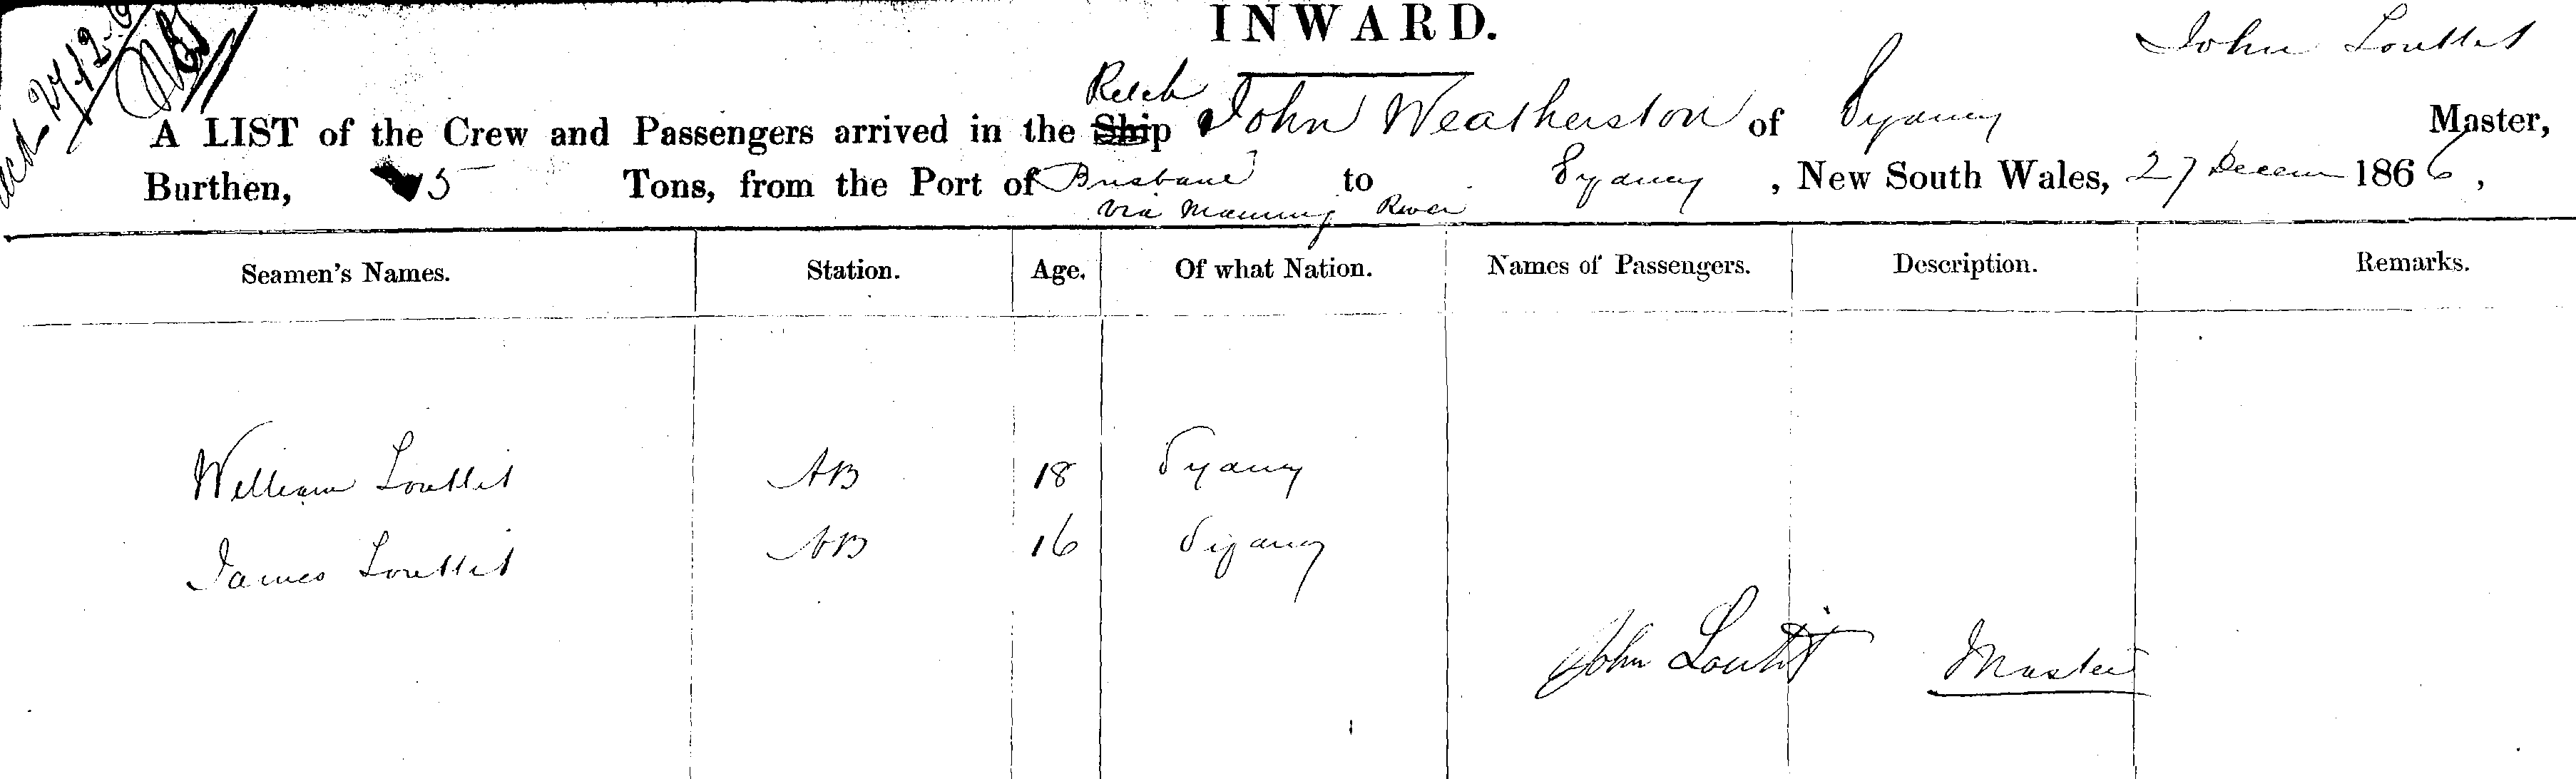 INWARD.
John Louttit
Ketch
A LIST of the Crew and Passengers arrived in the Ship John Weatherston of Sydney Master,
Burthen, 5 Tons, from the Port of Brisbane to Sydney, New South Wales, 27 Decem 1866,
Via Manning River
Seamen's Names. Station. Age. Of what Nation. Names of Passengers. Description. Remarks.
William Louttit AB 18 Sydney
James Louttit AB 16 Sydney
John Louttit Master